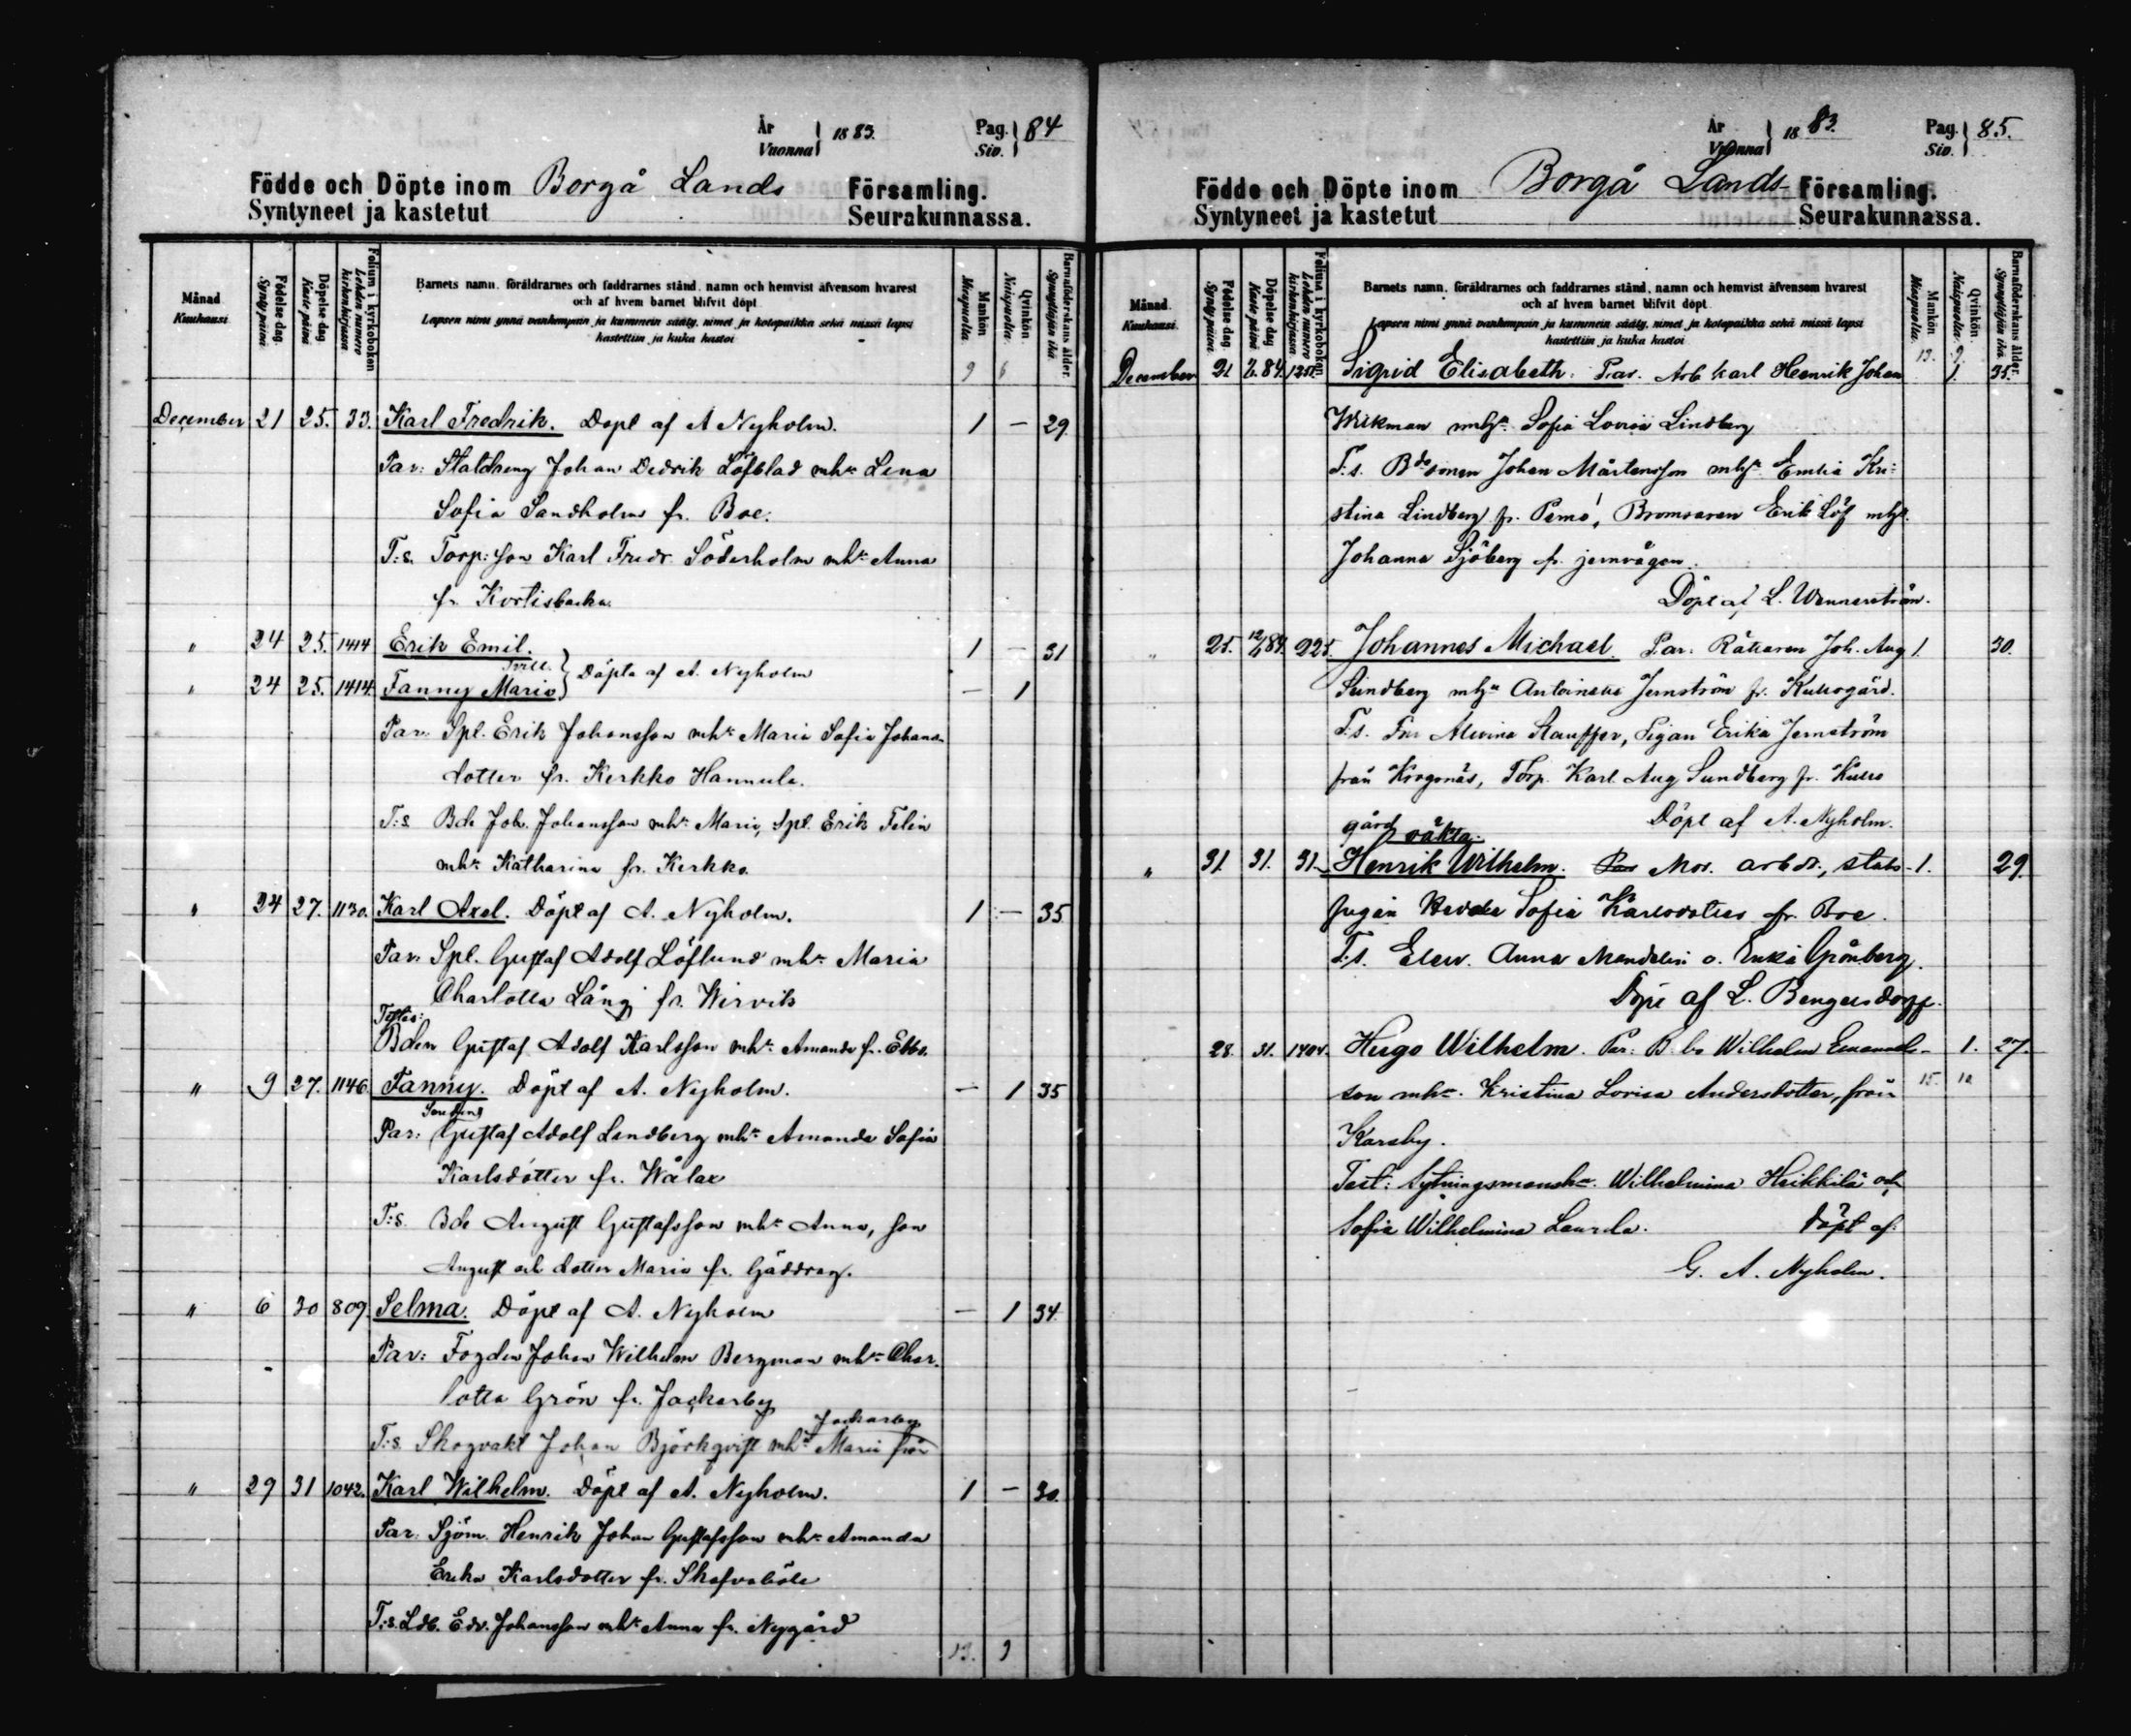 År
Vuonna
1883.
Pag.
Siv.
84
Födde och Döpte inom Borgå Lands Församling.
Syntyneet ja kastetut Seurakunnassa.
Månad
Kuukausi.
Födelse dag.
Synty päivä
Döpelse dag.
Kaste päivä
Folium i kyrkoboken
Lehden numero kirkonkirjassa
Barnets namn, föräldrarnes och faddrarnes stånd, namn och hemvist äfvensom hvarest
och af hvem barnet blifvit döpt.
Lapsen nimi ynnä vanhempain ja kummein sääty, nimet ja kotopaikka sekä missä lapsi
kastettiin ja kuka kastoi
Mankön
Miespuolia.
Qvinkön.
Naispuolia.
Barnaföderskans ålder.
Synnyttäjän ikä.
9 6
December 21 25. 33. Karl Fredrik. Döpt af A Nyholm. 1 – 29.
Par: Staldreng Johan Dedrik Löfblad mhr Lena
Sofia Sandholm fr. Boe.
T:s. Torp: son Karl Fredr. Söderholm mhr Anna
fr. Kortisbacka
" 24 25. 1414 Erik Emil. 1 – 31
Tvill. Döpta af A. Nyholm
" 24 25. 1414. Fanny Maria – 1
Par: Spl. Erik Johansson mhr Maria Sofia Johans-
dotter fr. Kerkko Hannula.
T:s Bde Joh. Johansson mhr Maria, Spl. Erik Felin
mhr Katharina fr. Kerkko.
" 24 27. 1130. Karl Axel. Döpt af A. Nyholm. 1 – 35
Par: Spl. Gustaf Adolf Löflund mhr Maria
Charlotta Lång fr. Wirvik
Testes:
Bden Gustaf Adolf Karlsson mhr Amanda fr. Ebbo.
" 9 27. 1146. Fanny. Döpt af A. Nyholm. – 1 35
Par: Gustaf Adolf Landberg mhr Amanda Sofia
Karlsdotter fr. Wålax
T:s. Bde August Gustafsson mhr Anna, son
August och dotter Maria fr. Gäddrag.
" 6 30 809. Selma. Döpt af A. Nyholm – 1 34.
Par: Fogden Johan Wilhelm Bergman mhr Char-
lotta Grön fr. Jackarby
Jackarby
T:s. Skogvakt Johan Björkqvist mhr Maria från
" 29 31 1042. Karl Wilhelm. Döpt af A. Nyholm. 1 – 30.
Par: Sjöm. Henrik Johan Gustafsson mhr Amanda
Erika Karlsdotter fr. Skafvaböle
T:s. Ldb. Edv. Johansson mhr Anna fr. Nygård
13. 9
År
Vuonna
1883.
Pag.
Siv.
85.
Födde och Döpte inom Borgå Lands- Församling.
Syntyneet ja kastetut Seurakunnassa.
Månad.
Kuukausi.
Födelse dag.
Synty päivä.
Döpelse dag
Kaste päivä
Folium i kyrkoboken.
Lehden numero kirkonkirjassa.
Barnets namn, föräldrarnes och faddrarnes stånd, namn och hemvist äfvensom hvarest
och af hvem barnet blifvit döpt.
Lapsen nimi ynnä vanhempain ja kummein sääty, nimet ja kotopaikka sekä missä lapsi
kastettiin ja kuka kastoi
Mankön
Miespuolia.
Qvinkön.
Naispuolia.
Barnaföderskans ålder.
Synnyttäjän ikä.
13. 9.
December 21 84. Sigrid Elisabeth. Par. Arb Karl Henrik Johan 1. 35.
Wikman mhr Sofia Lovisa Lindberg
T:s. Bdesonen Johan Mårtensson mhr Emlia Kri-
stina Lindberg fr. Pernå, Bromsaren Erik Löf mhr
Johanna Sjöberg fr. jernvägen.
Döpt af L. Wennerström.
" 25. 84. 225. Johannes Michael. Par: Rättaren Joh. Aug 1. 30.
Sundberg mhr Antoinetta Jernström fr. Kullogård.
T:s. Alvina Stauffer, Pigan Erika Jernström
från Krogsnäs, Torp. Karl Aug Sundberg fr. Kullo
gård Döpt af A. Nyholm.
oäkta.
" 31. 31. 31. Henrik Wilhelm. Par Mor. arbdr., stats- 1. 29.
pigan Hedda Sofia Karlsdotter fr. Boe.
T:s. Elev. Anna Mandelin o. Erika Grönberg.
Döpt af L. Bengelsdorff.
28. 31. 1404. Hugo Wilhelm. Par: B. bo Wilhelm Emanuels- 1. 27.
son mhr. Kristina Lovisa Andersdotter, från 15. 10
Karsby.
Test: Sytningsmansh. Wilhelmina Heikkilä och
Sofia Wilhelmina Laurla. Döpt af
G. A. Nyholm.